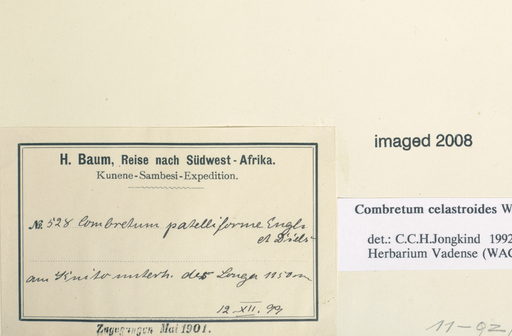 H. Baum, Reise nach Südwest-Afrika.
Kunene-Sambesi-Expedition.
№ 528 Combretum patelliforme Engl.
et Diels
am Kuito unterh. des Longa 1150 m
12 XII. 99
Zugegangen Mai 1901.
imaged 2008
Combretum celastroides W
det.: C.C.H.Jongkind 1992
Herbarium Vadense (WAG
11-92